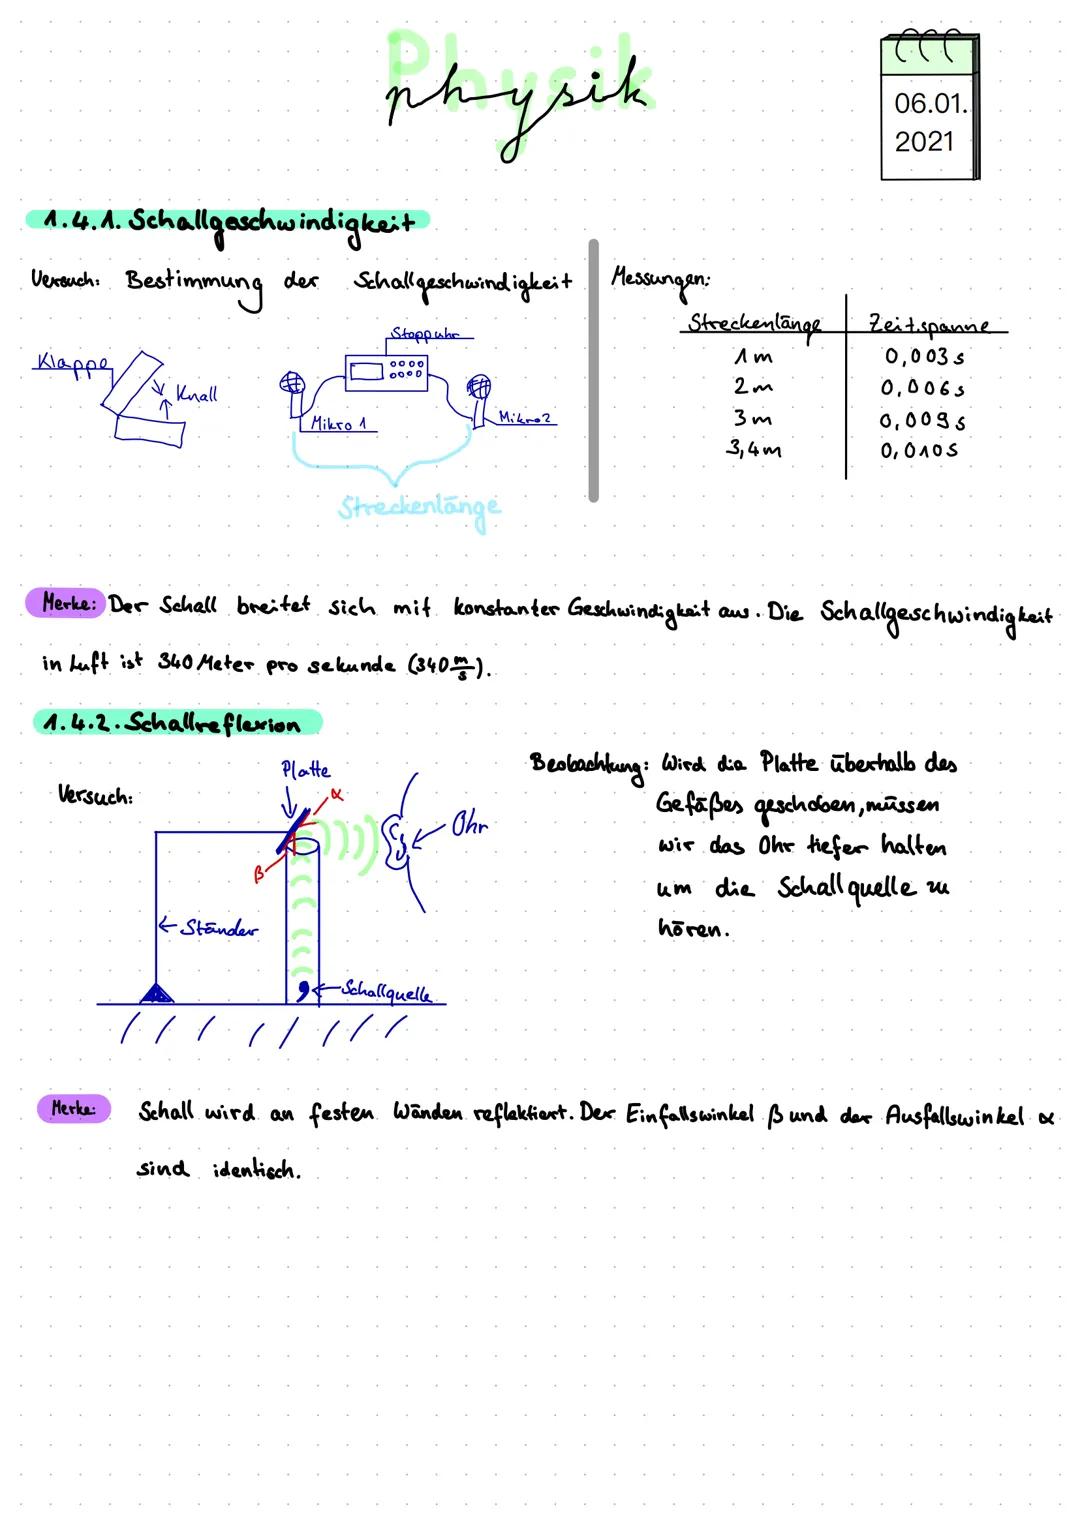 Physik
physik
06.01.
2021
1.4.1. Schallgeschwindigkeit
Versuch: Bestimmung der Schallgeschwindigkeit
Klappe
Knall
Stoppuhr
Mikro 1
Mikro 2
Streckenlänge
Messungen:
Streckenlänge Zeitspanne
1 m 0,003 s
2 m 0,006 s
3 m 0,009 s
3,4 m 0,010 s
Merke: Der Schall breitet sich mit konstanter Geschwindigkeit aus. Die Schallgeschwindigkeit
in Luft ist 340 Meter pro sekunde (340 m/s).
1.4.2. Schallreflexion
Versuch:
Platte
α
β
Ohr
← Ständer
← Schallquelle
Beobachtung: Wird die Platte überhalb des
Gefäßes geschoben, müssen
wir das Ohr tiefer halten
um die Schallquelle zu
hören.
Merke: Schall wird an festen Wänden reflektiert. Der Einfallswinkel β und der Ausfallswinkel α
sind identisch.